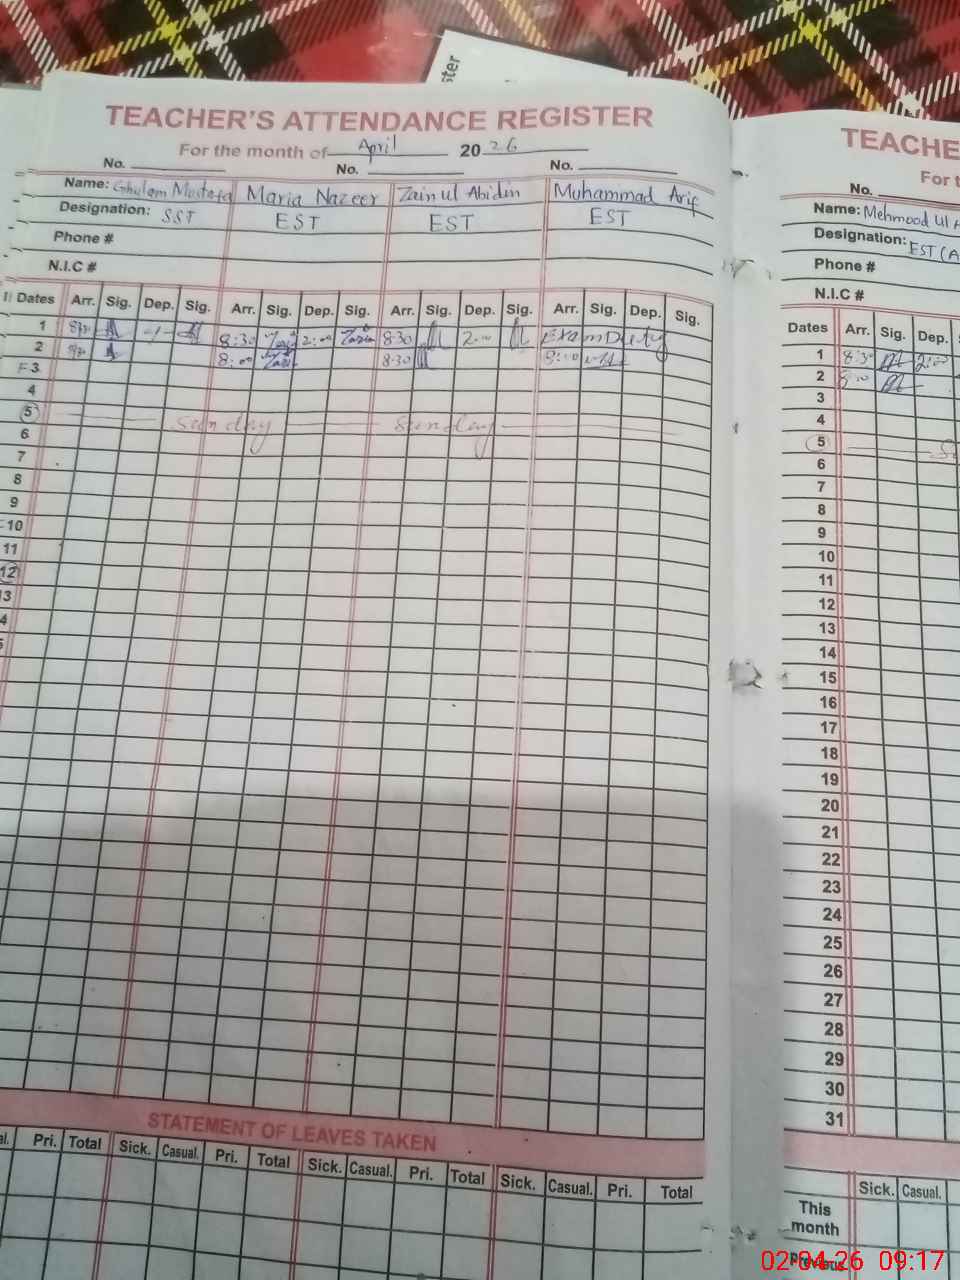 ster
TEACHER'S ATTENDANCE REGISTER
For the month of April 2026
No. No. No.
Name: Ghulam Mustafa Maria Nazeer Zain ul Abidin Muhammad Arif
Designation: SST EST EST EST
Phone #
N.I.C #
Dates Arr. Sig. Dep. Sig. Arr. Sig. Dep. Sig. Arr. Sig. Dep. Sig. Arr. Sig. Dep. Sig.
1 8:30 2:00 8:30 2:00 Exam Duty
2 8:00 8:30
F 3
4
5 Sunday Sunday
6
7
8
9
10
11
12
3
4
STATEMENT OF LEAVES TAKEN
Pri. Total Sick. Casual. Pri. Total Sick. Casual. Pri. Total Sick. Casual. Pri. Total
TEACHE
For t
No.
Name: Mehmood Ul
Designation: EST (A
Phone #
N.I.C #
Dates Arr. Sig. Dep.
1 8:30 2:00
2
3
4
5
6
7
8
9
10
11
12
13
14
15
16
17
18
19
20
21
22
23
24
25
26
27
28
29
30
31
Sick. Casual.
This
month
Previous
02-04-26 09:17